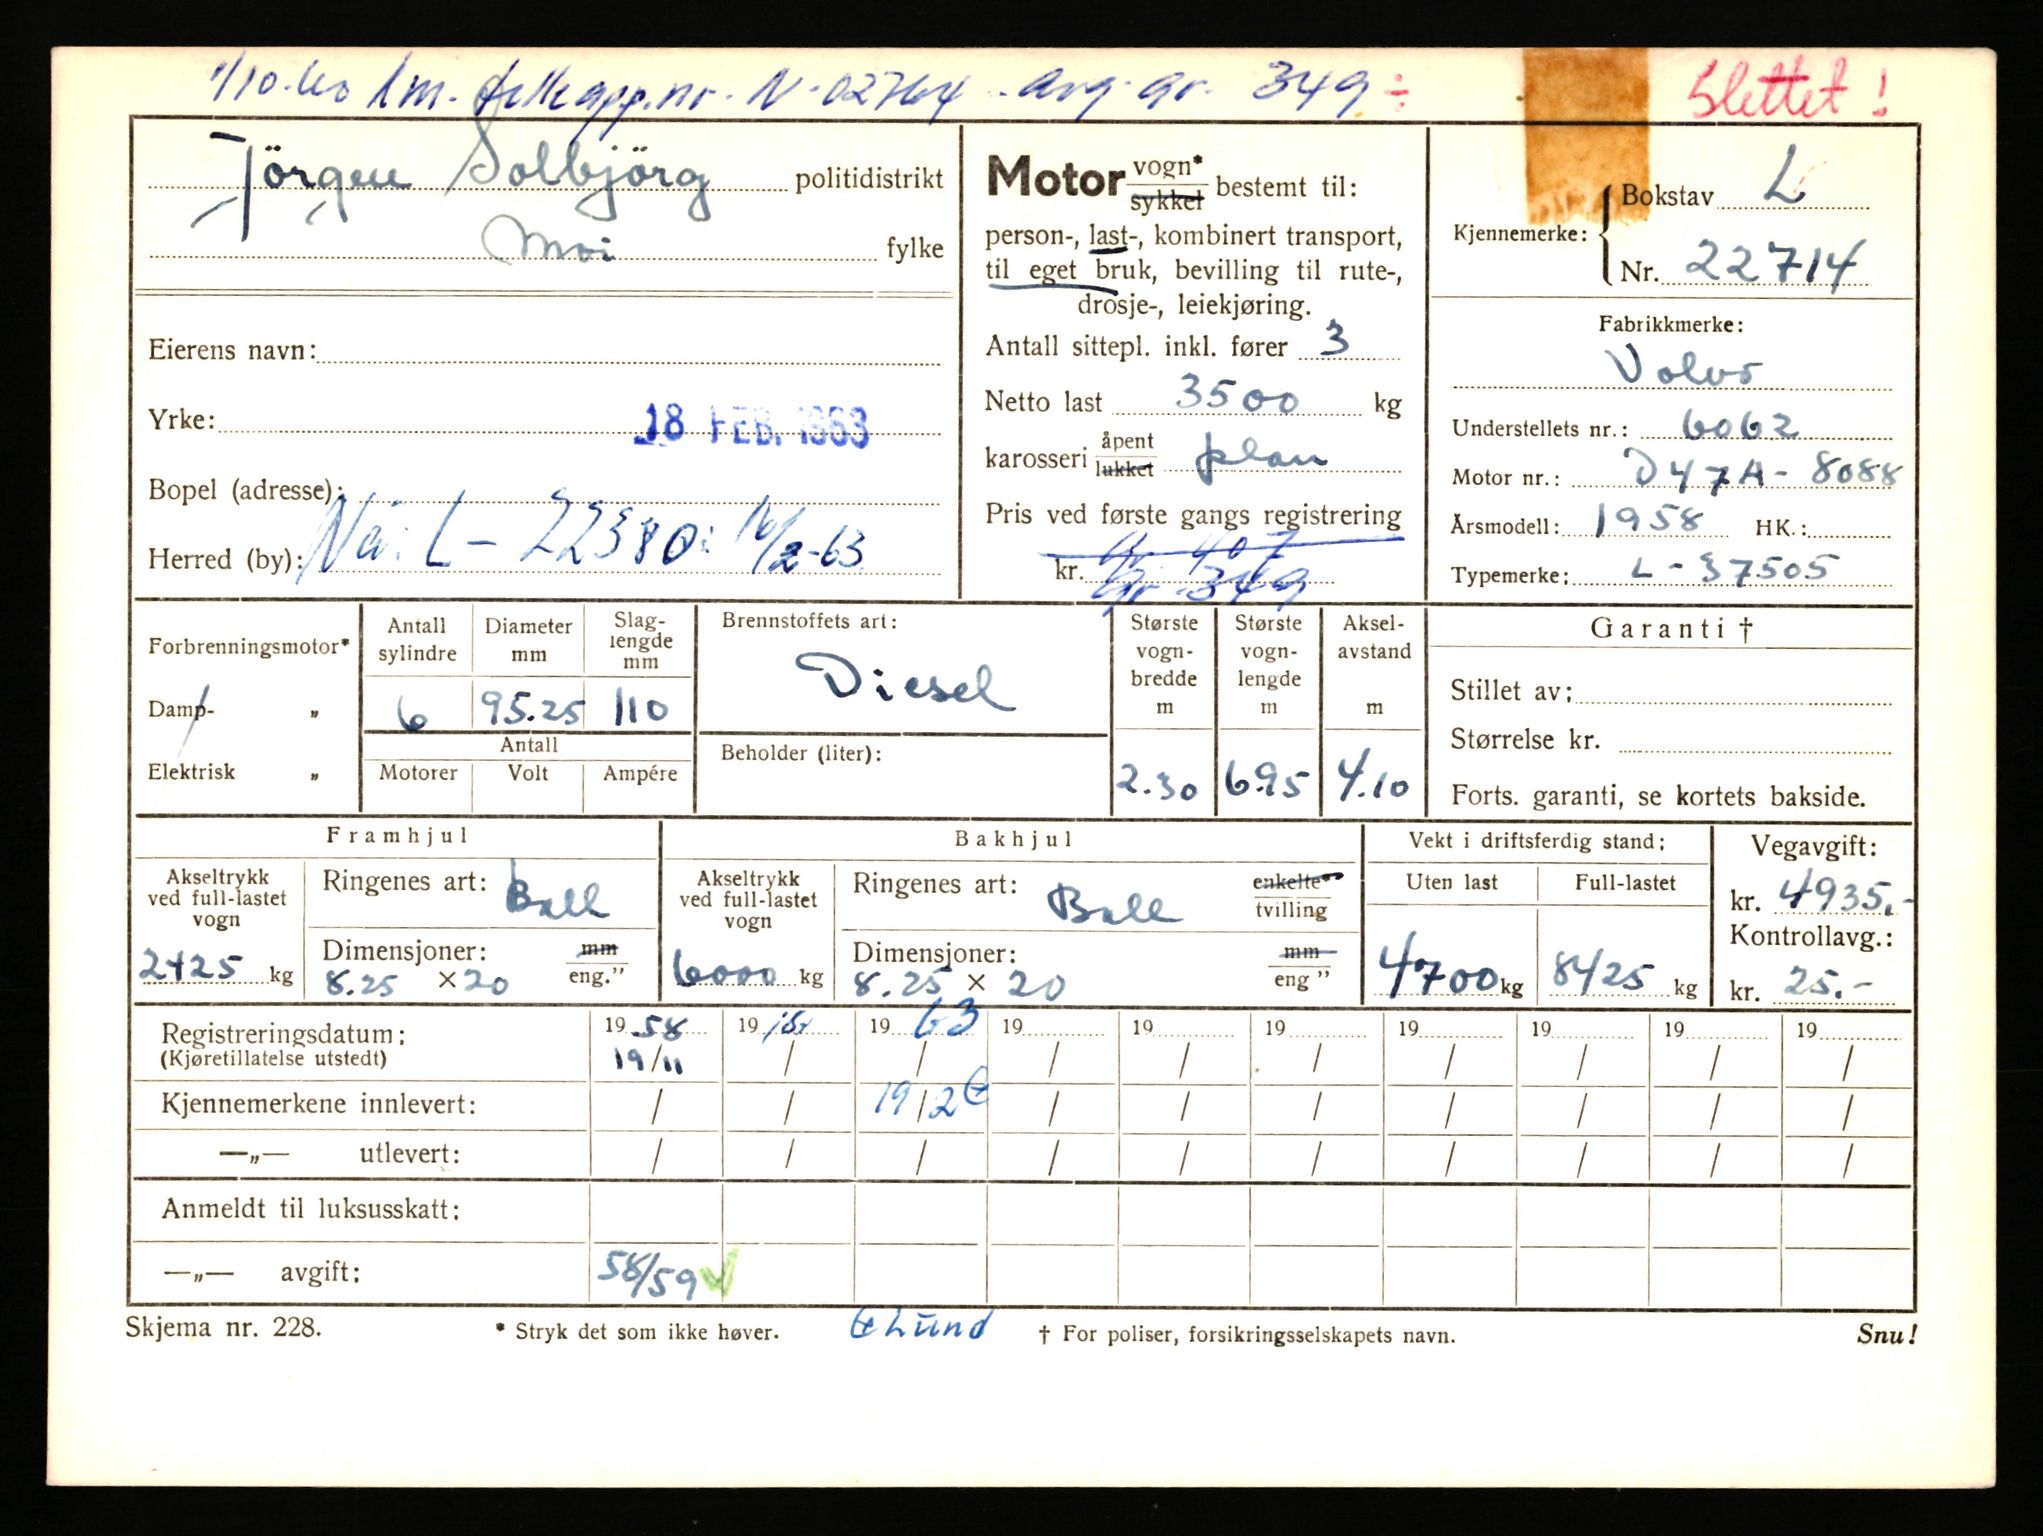 1/10-60 km. tellerapp.nr. N-02764 - avg. gr. 349 ÷ Slettet!
Jörgen Solbjörg politidistrikt
Moi fylke
Eierens navn:
Yrke: 18 FEB. 1963
Bopel (adresse):
Herred (by): Nå: L - 22380: 16/2-63
Motor vogn* sykkel bestemt til:
person-, last-, kombinert transport,
til eget bruk, bevilling til rute-,
drosje-, leiekjøring.
Antall sittepl. inkl. fører 3
Netto last 3500 kg
karosseri åpent lukket plan
Pris ved første gangs registrering
gr 407
kr. gr. 349
Kjennemerke: Bokstav L
Nr. 22714
Fabrikkmerke:
Volvo
Understellets nr.: 6062
Motor nr.: D47A - 8088
Årsmodell: 1958 HK.:
Typemerke: L - 37505
Forbrenningsmotor*
Damp- „
Elektrisk „
Antall sylindre Diameter mm Slag-lengde mm
6 95.25 110
Antall
Motorer Volt Ampére
Brennstoffets art:
Diesel
Beholder (liter):
Største vogn-bredde m Største vogn-lengde m Aksel-avstand m
2.30 6.95 4.10
Garanti †
Stillet av:
Størrelse kr.
Forts. garanti, se kortets bakside.
Framhjul
Akseltrykk ved full-lastet vogn
2425 kg
Ringenes art: Ball
Dimensjoner: mm
8.25 × 20 eng.”
Bakhjul
Akseltrykk ved full-lastet vogn
6000 kg
Ringenes art: Ball enkelte** tvilling
Dimensjoner: mm
8.25 × 20 eng ”
Vekt i driftsferdig stand:
Uten last Full-lastet
4700 kg 8425 kg
Vegavgift:
kr. 4935.-
Kontrollavg.:
kr. 25.-
Registreringsdatum: 19 58 19 19 63 19 19 19 19 19 19 19
(Kjøretillatelse utstedt) 19/11 / / / / / / / / /
Kjennemerkene innlevert: / / 19/2 / / / / / / /
—„— utlevert: / / / / / / / / / /
Anmeldt til luksusskatt:
—„— avgift: 58/59
Skjema nr. 228. * Stryk det som ikke høver. GLund † For poliser, forsikringsselskapets navn. Snu!